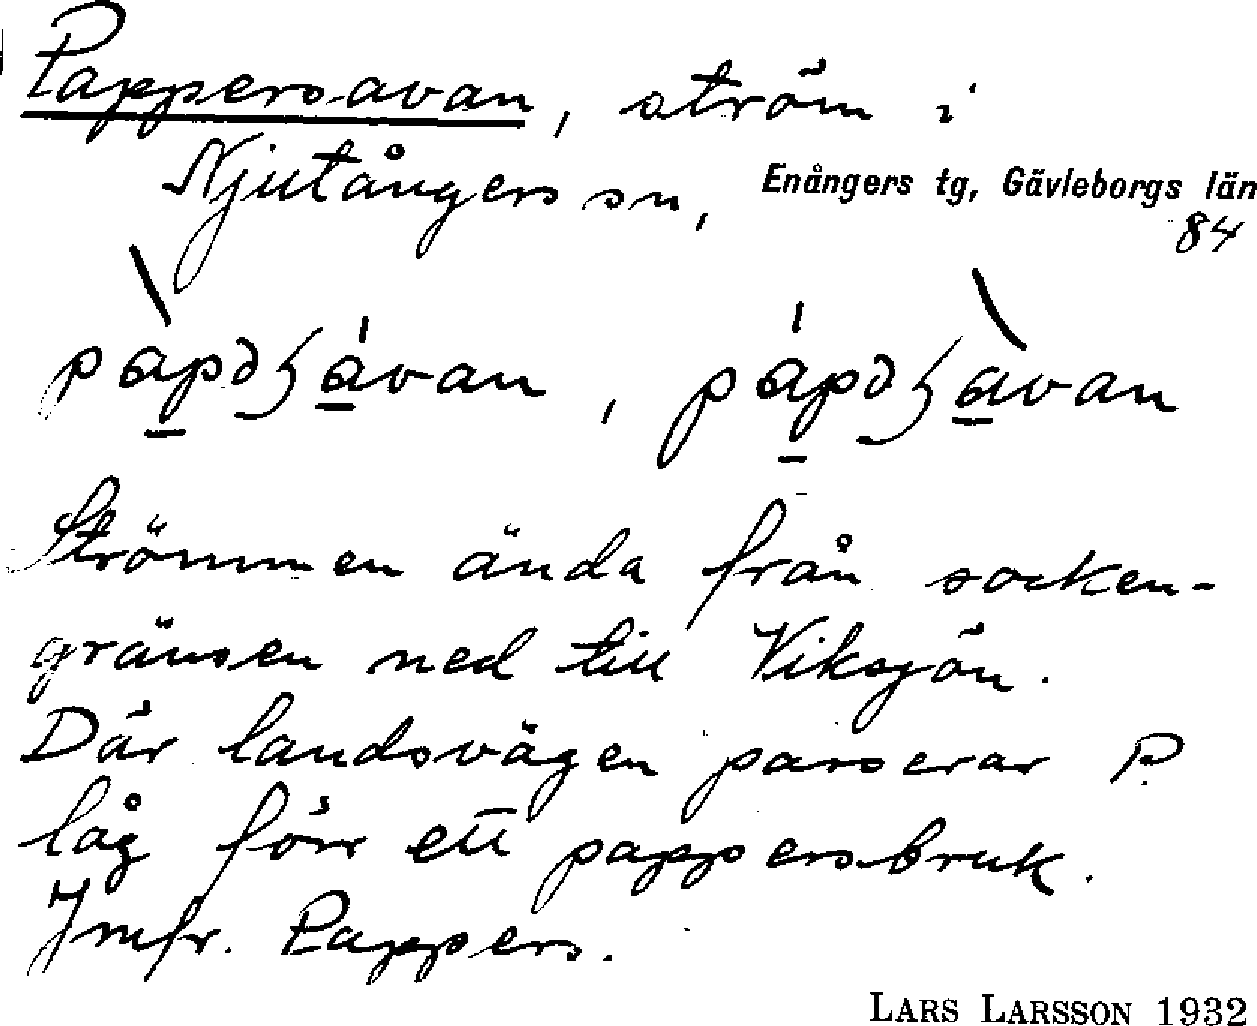 Pappersavan, ström i
Njutångers sn, Enångers tg, Gävleborgs län
84
Strömmen ända från socken-
gränsen ned till Viksjön.
Där landsvägen passerar P.
låg förr ett pappersbruk.
Jmfr. Pappers.
LARS LARSSON 1932